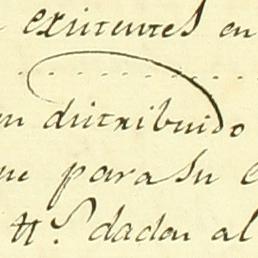 existentes en
. . . . . . . . . . . .
en distribuido
que para su
tt.s dadas al